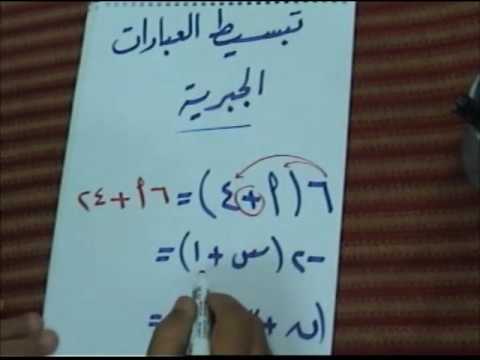 تبسيط العبارات
الجبرية
٦(٩+٤)=٦٩+٢٤
-٢(س+١)=